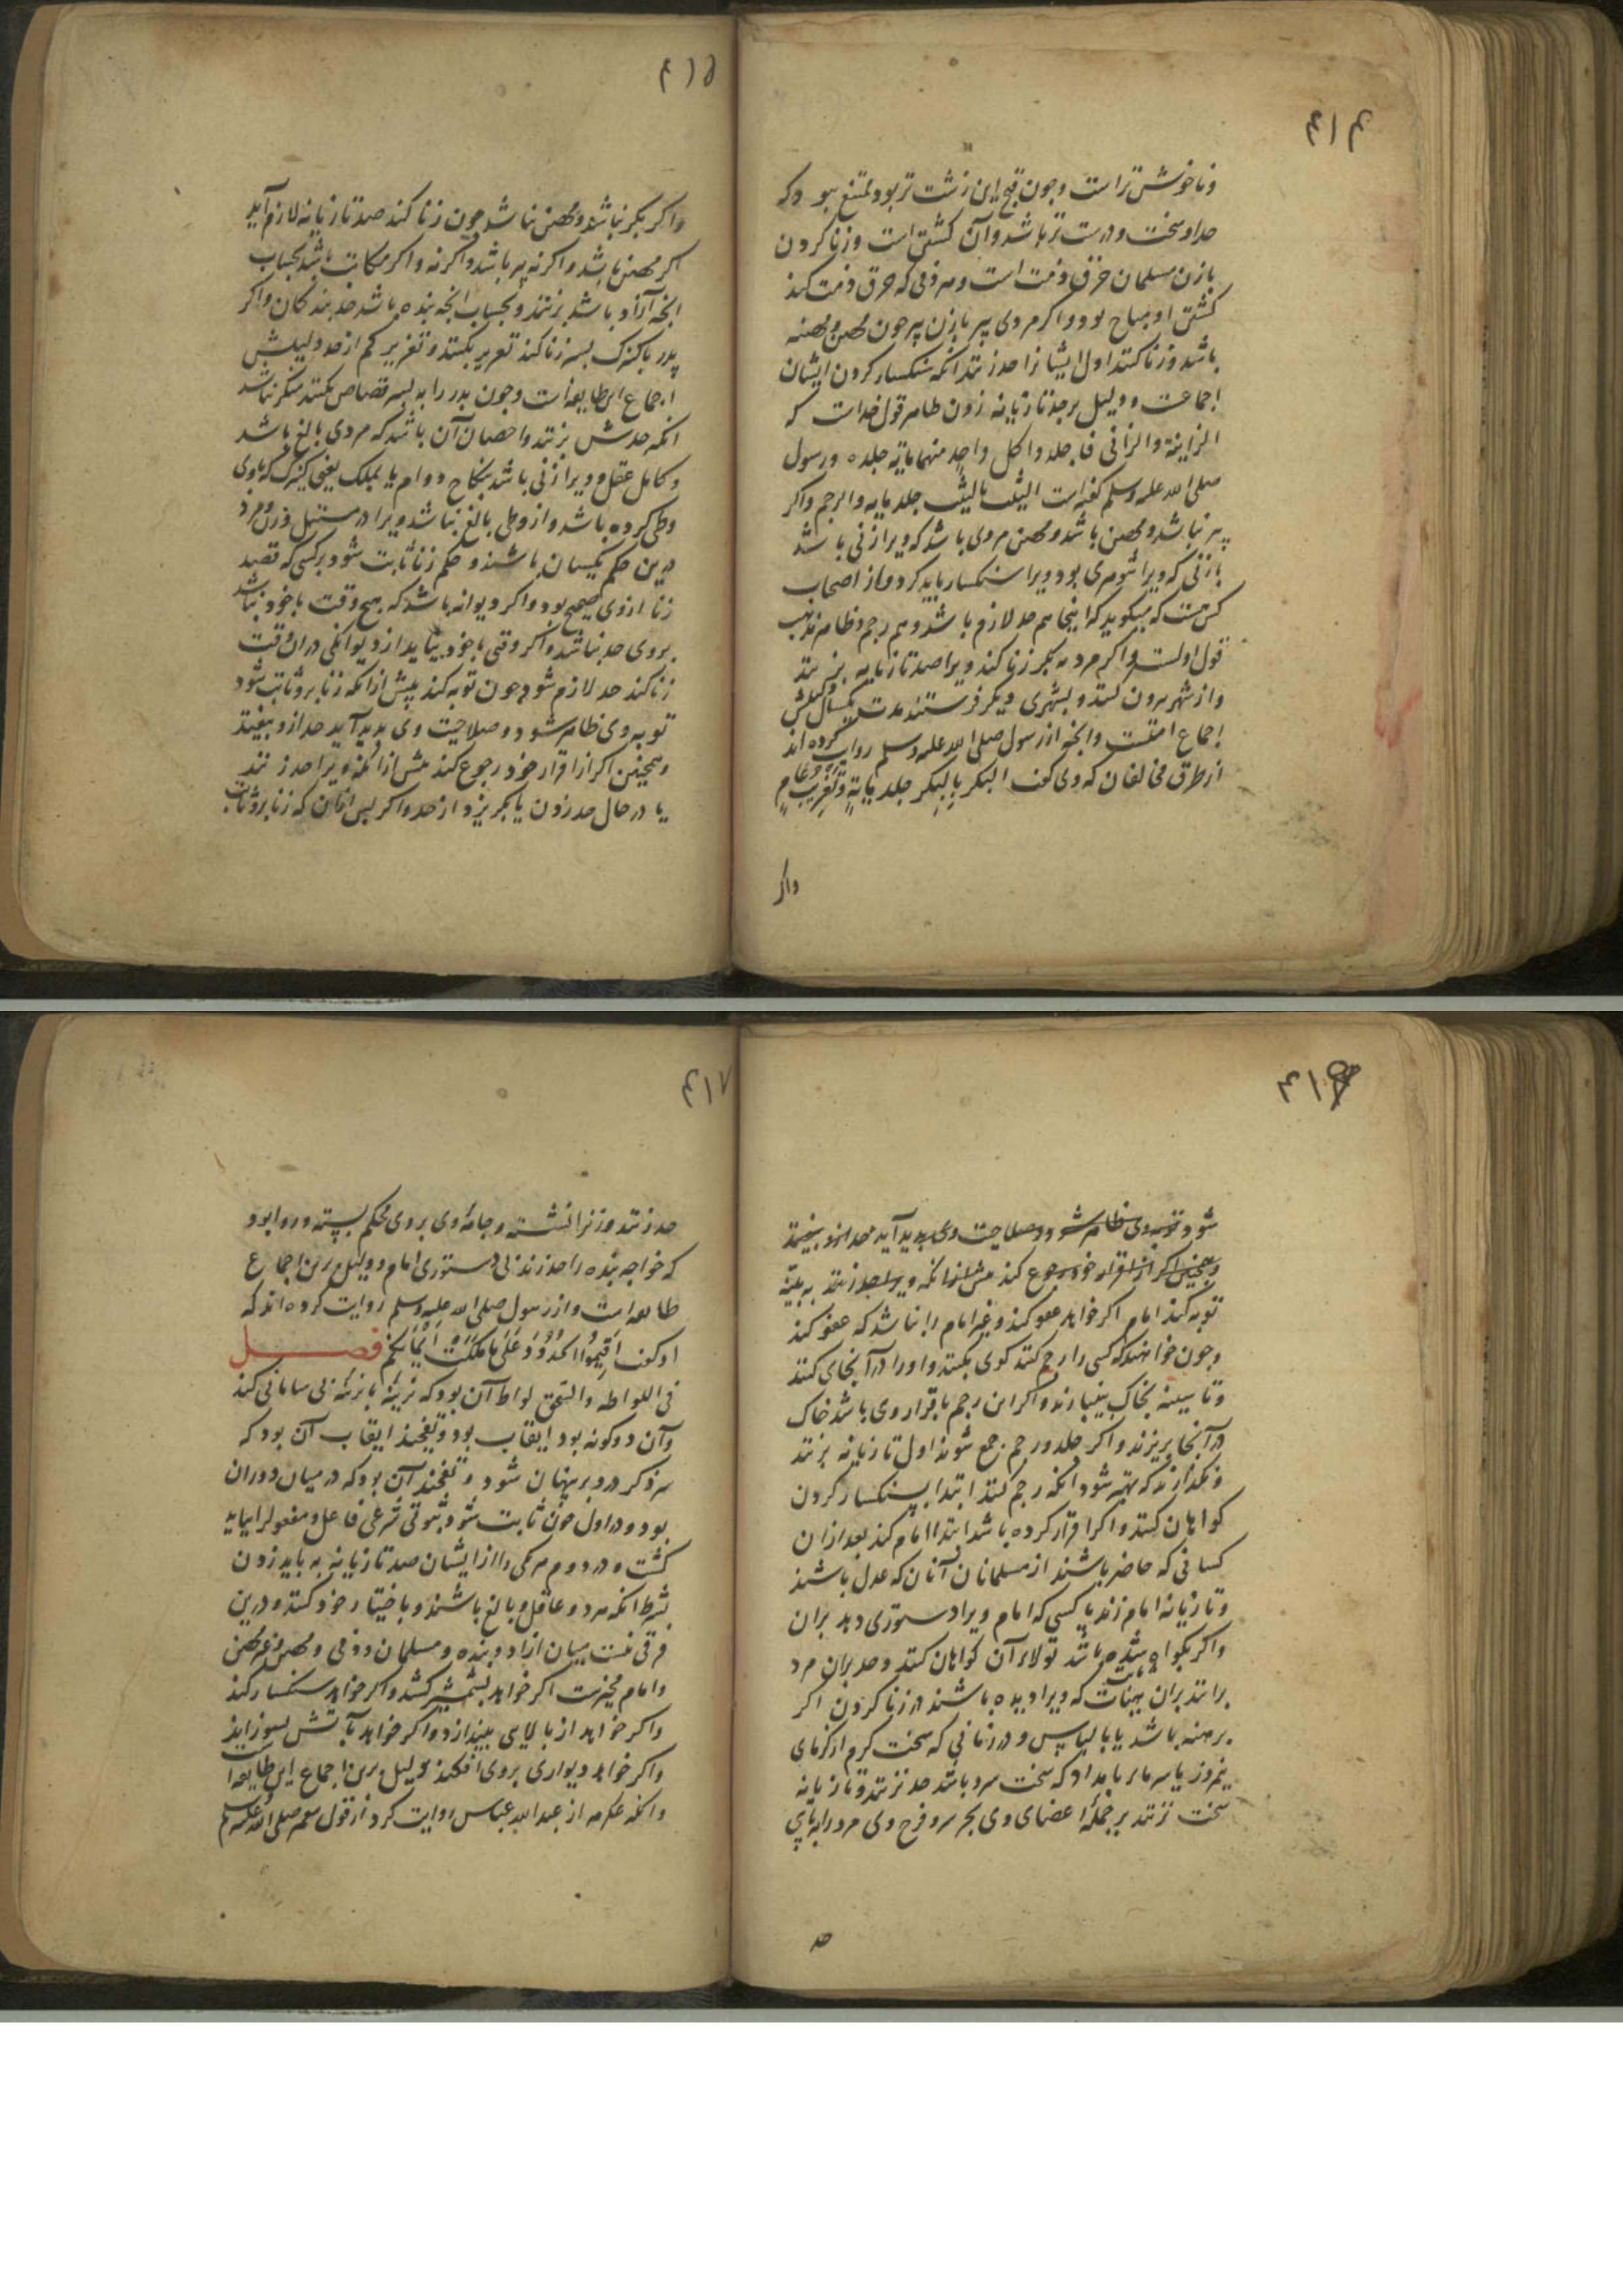 ۴۱۴
وناخوش تراست وچون قبح این زشت تر بود ممتنع نبود که
حد او سخت ودرست تر باشد وآن کشتن است وزنا کردن
بازن مسلمان خرق ذمت است وهر ذمی که خرق ذمت کند
کشتن او مباح بود واکر مردی پیر بازن پیر چون محصن ومحصنه
باشد وزنا کنند اول ایشانرا حد زنند انکه سنکسار کردن ایشان
اجماعست ودلیل بر حد تازیانه زدن ظاهر قول خدات که
الزانیة والزانی فاجلدوا کل واحد منهما مایة جلده ورسول
صلی الله علیه وسلم کفته است الثیب بالثیب جلد مایه والرجم واکر
پیر نباشد ومحصن باشد ومحصن مردی باشد که ویرا زنی باشد
یا زنی که ویرا شوهری بود ویرا سنکسار باید کرد واز اصحاب
کس هست که میکوید که اینجا هم حد لازم باشد وهم رجم وظاهر مذهب
قول اولست واکر مرد بکر زنا کند ویرا صد تازیانه بزنند
واز شهر بیرون کنند وبشهری دیکر فرستند مدت یکسال دلیلش
اجماع امتست وانچه از رسول صلی الله علیه وسلم روایت کرده اند
از طرق مخالفان که وی کفت البکر بالبکر جلد مایة وتغریب عام
واکر
۴۱۵
واکر بکر نباشد ومحصن نباشد چون زنا کند صد تازیانه لازم آید
اکر محصن باشد واکر نه پیر باشد واکر نه واکر مکاتب باشد بحساب
انچه آزاد باشد بزنند وبحساب انچه بنده باشد حد بندکان واکر
پدر باکنیزک پسر زنا کند تعزیر بکنند وتعزیر کم از حد دلیلش
اجماع این طایفه است وچون پدر را به پسر قصاص نکنند منکر نباشد
انکه حدش نزنند واحصان آن باشد که مردی بالغ باشد
وکامل عقل وویرا زنی باشد بنکاح دوام یا بملک یعنی کنیزک که باوی
وطی کرده باشد واز وطی مانع نباشد ویرا در مستقبل وزن ومرد
درین حکم یکسان باشند وحکم زنا ثابت شود برکسی که قصد
زنا ازوی صحیح بود واکر دیوانه باشد که هیچ وقت باخود نباشد
بروی حد نباشد واکر وقتی باخود بیاید از دیوانکی در ان وقت
زنا کند حد لازم شود وچون توبه کند پیش از انکه زنا بروثابت شود
توبه وی ظاهر شود وصلاحیت وی پدید آید حد ازو بیفتد
وهمچنین اکر از اقرار خود رجوع کند پیش از انکه ویرا حد زنند
یا در حال حد زدن یا بکریزد از حد واکر پس از ان که زنا بروثابت
۴۱۶
شود توبه وی ظاهر شود وصلاحیت وی پدید آید حد ازو بیفتد
وهمچنین اکر از اقرار خود رجوع کند پیش از انکه ویرا حد زنند به بینه
توبه کند امام اکر خواهد عفو کند وغیر امام را نباشد که عفو کند
وچون خواهند که کسی را رجم کنند کوی بکنند واورا در آنجای کنند
وتا سینه بخاک بینبارند واکر این رجم باقرار وی باشد خاک
در آنجا بریزند واکر جلد ورجم جمع شوند اول تازیانه بزنند
وبکذارند که بهتر شود انکه رجم کنند ابتدا بسنکسار کردن
کواهان کنند واکر اقرار کرده باشد ابتدا امام کند بعد ازان
کسانی که حاضر باشند از مسلمانان آنان که عدل باشند
وتازیانه امام زند یا کسی که امام ویرا دستوری دهد بران
واکر بکواه ثابت شده باشد تولای آن کواهان کنند وحد بران مرد
برانند بران هیئات که ویرا دیده باشند در زنا کردن اکر
برهنه باشد یا بالباس ودر زمانی که سخت کرم از کرمای
نیمروز یا سرمای بامداد که سخت سرد باشد حد نزنند وتازیانه
سخت زنند برجمله اعضای وی بجز سر وفرج وی مرد را بر پای
حد
۴۱۷
حد زنند وزنرا نشسته وجامه وی بروی محکم بسته وروا بود
که خواجه بنده را حد زند بی دستوری امام ودلیل برین اجماع
طایفه است واز رسول صلی الله علیه وسلم روایت کرده اند که
او کفت اَقِیمُوا الحُدُودَ عَلَی مَا مَلَکَتْ اَیْمَانُکُمْ فصل
فی اللواطه والسحق لواط آن بود که نرینه بانرینه بی سامانی کند
وآن دوکونه بود ایقاب بود وتفخیذ ایقاب آن بود که
سر ذکر در دبر پنهان شود وتفخیذ آن بود که در میان دو ران
بود ودر اول چون ثابت شود ثبوتی شرعی فاعل ومفعول را بباید
کشت ودر دوم هر یکی را از ایشان صد تازیانه بباید زدن
بشرط انکه هر دو عاقل وبالغ باشند وباختیار خود کنند ودرین
فرقی نیست میان آزاد وبنده ومسلمان وذمی ومحصن وغیر محصن
وامام مخیرست اکر خواهد بشمشیر کشد واکر خواهد سنکسار کند
واکر خواهد از بالایی بیندازد واکر خواهد بآتش بسوزاند
واکر خواهد دیواری بروی افکند دلیل برین اجماع این طایفه است
وانکه عکرمه از عبدالله عباس روایت کرد از قول پیغمبر صلی الله علیه وسلم